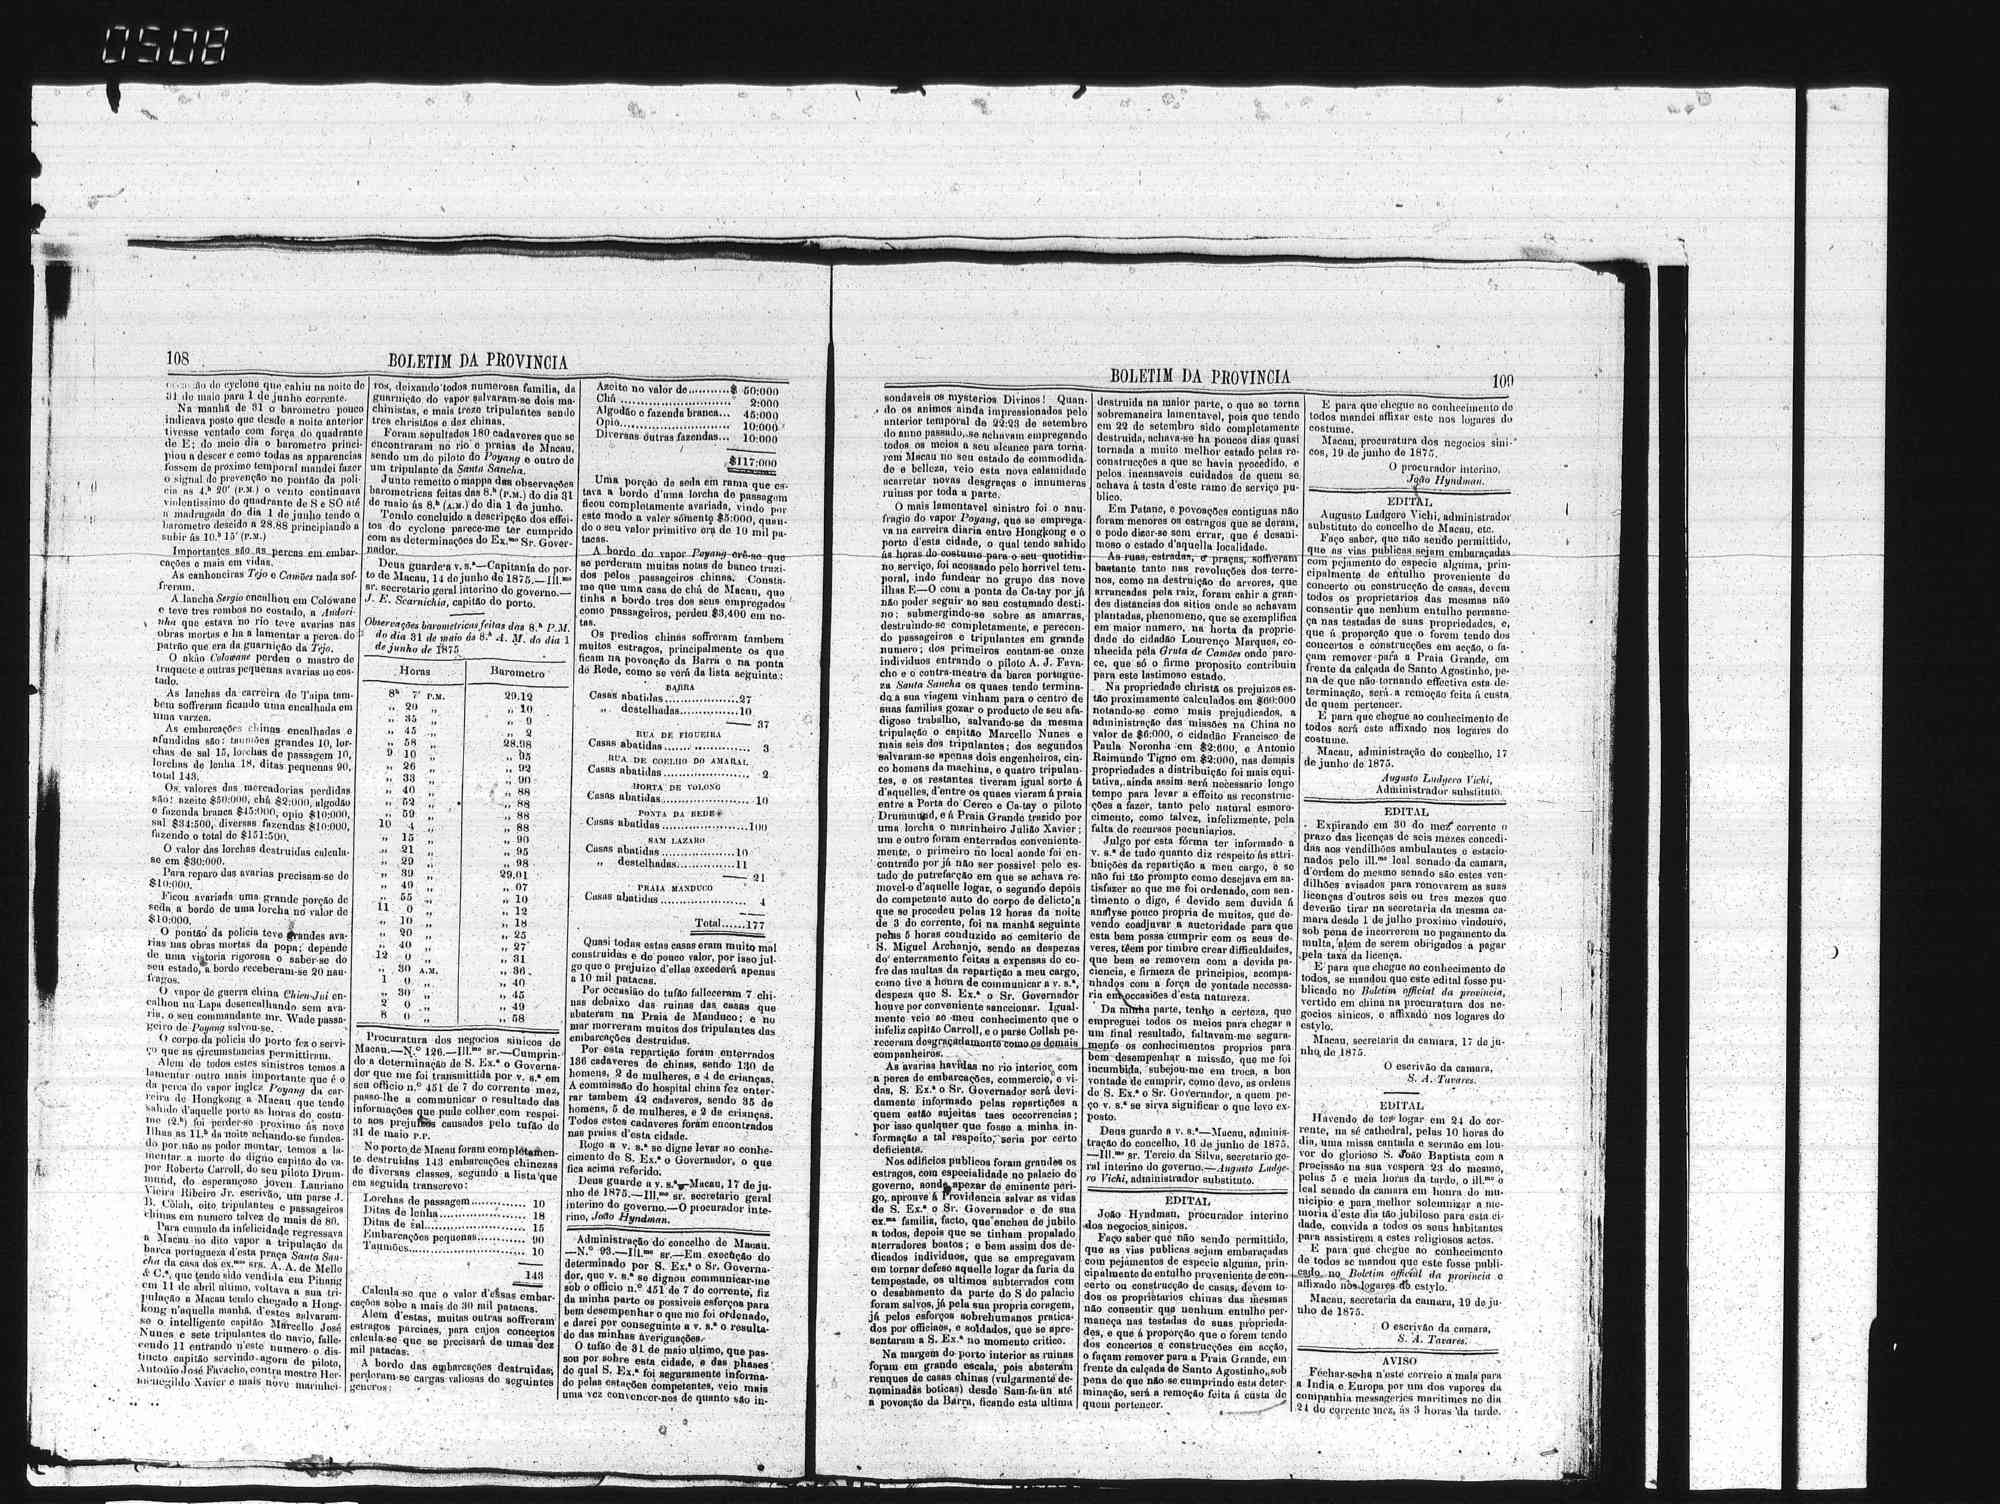 0508
108
BOLETIM DA PROVINCIA
do cyclone que cahiu na noite de
31 de maio para 1 de junho corrente.
Na manhã de 31 o barometro pouco
indicava posto que desde a noite anterior
tivesse ventado com força do quadrante
de E; do meio dia o barometro princi-
piou a descer e como todas as apparencias
fossem de proximo temporal mandei fazer
o signal de prevenção no pontão da poli-
cia as 4.ʰ 20' (P.M.) o vento continuava
violentissimo do quadrante de S e SO até
a madrugada do dia 1 de junho tendo o
barometro descido a 28.88 principiando a
subir ás 10.ʰ 15' (P.M.)
Importantes são as percas em embar-
cações e mais em vidas.
As canhoneiras Tejo e Camões nada sof-
freram.
A lancha Sergio encalhou em Colówane
e teve tres rombos no costado, a Andori-
nha que estava no rio teve avarias nas
obras mortas e ha a lamentar a perca do
patrão que era da guarnição da Tejo.
O akão Colowane perdeu o mastro de
traquete e outras pequenas avarias no cos-
tado.
As lanchas da carreira de Taipa tam-
bem soffreram ficando uma encalhada em
uma varzea.
As embarcações chinas encalhadas e
afundidas são: taumões grandes 10, lor-
chas de sal 15, lorchas de passagem 10,
lorchas de lenha 18, ditas pequenas 90,
total 143.
Os valores das mercadorias perdidas
são: azeite $50:000, chá $2:000, algodão
e fazenda branca $45:000, opio $10:000,
sal $34:500, diversas fazendas $10:000,
fazendo o total de $151:500.
O valor das lorchas destruidas calcula-
se em $30:000.
Para reparo das avarias precisam-se de
$10:000.
Ficou avariada uma grande porção de
seda a bordo de uma lorcha no valor de
$10:000.
O pontão da policia teve grandes ava-
rias nas obras mortas da popa; depende
de uma vistoria rigorosa o saber-se do
seu estado, a bordo receberam-se 20 nau-
fragos.
O vapor de guerra china Chien-Jui en-
calhou na Lapa desencalhando sem ava-
ria, o seu commandante mr. Wade passa-
geiro de Poyang salvou-se.
O corpo da policia do porto fez o servi-
ço que as circumstancias permittiram.
Alem de todos estes sinistros temos a
lamentar outro mais importante que é o
da perca do vapor inglez Poyang da car-
reira de Hongkong a Macau que tendo
sahido d'aquelle porto as horas do costu-
me (2.ʰ) foi perder-se proximo ás nove
Ilhas as 11.ʰ da noite achando-se fundea-
do por não as poder montar, temos a la-
mentar a morte do digno capitão do va-
por Roberto Carroll, do seu piloto Drum-
mund, do esperançoso joven Lauriano
Vieira Ribeiro Jr. escrivão, um parse J.
B. Colah, oito tripulantes e passageiros
chinas em numero talvez de mais de 80.
Para cumulo da infelicidade regressava
a Macau no dito vapor a tripulação da
barca portugueza d'esta praça Santa San-
cha da casa dos ex.ᵐᵒˢ srs. A. A. de Mello
& C.ª, que tendo sido vendida em Pinang
em 11 de abril ultimo, voltava a sua tri-
pulação a Macau tendo chegado a Hong-
kong n'aquella manhã, d'estes salvaram-
se o intelligente capitão Marcello José
Nunes e sete tripulantes do navio, falle-
cendo 11 entrando n'este numero o dis-
tincto capitão servindo agora de piloto,
Antonio José Favacho, contra mestre Her-
menegildo Xavier e mais nove marinhei-
ros, deixando todos numerosa familia, da
guarnição do vapor salvaram-se dois ma-
chinistas, e mais treze tripulantes sendo
tres christãos e dez chinas.
Foram sepultados 180 cadaveres que se
encontraram no rio e praias de Macau,
sendo um do piloto do Poyang e outro de
um tripulante da Santa Sancha.
Junto remeito o mappa das observações
barometricas feitas das 8.ʰ (P.M.) do dia 31
de maio ás 8.ʰ (A.M.) do dia 1 de junho.
Tendo concluido a descripção dos effei-
tos do cyclone parece-me ter cumprido
com as determinações do Ex.ᵐᵒ Sr. Gover-
nador.
Deus guarde a v. s.ª—Capitania do por-
to de Macau, 14 de junho de 1875.—Ill.ᵐᵒ
sr. secretario geral interino do governo.—
J. E. Scarnichia, capitão do porto.
Observações barometricas feitas das 8.ʰ P.M.
do dia 31 de maio ás 8.ʰ A. M. do dia 1
de junho de 1875
Horas Barometro
8ʰ 7' P.M. 29.12
„ 20 „ „ 10
„ 35 „ „ 9
„ 45 „ „ 2
„ 58 „ 28.98
9 10 „ „ 95
„ 26 „ „ 92
„ 33 „ „ 90
„ 40 „ „ 88
„ 52 „ „ 88
„ 59 „ „ 88
10 4 „ „ 88
„ 15 „ „ 90
„ 21 „ „ 95
„ 29 „ „ 98
„ 39 „ 29.01
„ 49 „ „ 07
„ 55 „ „ 10
11 0 „ „ 12
„ 10 „ „ 18
„ 20 „ „ 25
„ 40 „ „ 27
12 0 „ „ 31
„ 30 A.M. „ 36
1 0 „ „ 40
„ 30 „ „ 45
2 0 „ „ 49
8 0 „ „ 58
Procuratura dos negocios sinicos de
Macau.—N.º 126.—Ill.ᵐᵒ sr.—Cumprin-
do a determinação de S. Ex.ª o Governa-
dor que me foi transmittida por v. s.ª em
seu officio n.º 451 de 7 do corrente mez,
passo-lhe a communicar o resultado das
informações que pude colher com respei-
to aos prejuisos causados pelo tufão de
31 de maio P.P.
No porto de Macau foram completamen-
te destruidas 143 embarcações chinezas
de diversas classes, segundo a lista que
em seguida transcrevo:
Lorchas de passagem............ 10
Ditas de lenha.................. 18
Ditas de sal.................... 15
Embarcações pequenas............ 90
Taumões......................... 10
143
Calcula-se que o valor d'essas embar-
cações sobe a mais de 30 mil patacas.
Alem d'estas, muitas outras soffreram
estragos parciaes, para cujos concertos
calcula-se que se precisará de umas dez
mil patacas.
A bordo das embarcações destruidas,
perderam-se cargas valiosas de seguintes
generos:
Azeite no valor de...........$ 50:000
Chá .......................... 2:000
Algodão e fazenda branca... 45:000
Opio.......................... 10:000
Diversas outras fazendas... 10:000
$117:000
Uma porção de seda em rama que es-
tava a bordo d'uma lorcha de passagem
ficou completamente avariada, vindo por
este modo a valer sómente $5:000, quan-
do o seu valor primitivo era de 10 mil pa-
tacas.
A bordo do vapor Poyang crê-se que
se perderam muitas notas de banco trazi-
dos pelos passageiros chinas. Consta-
me que uma casa de chá de Macau, que
tinha a bordo tres dos seus empregados
como passageiros, perdeu $3,400 em no-
tas.
Os predios chinas soffreram tambem
muitos estragos, principalmente os que
ficam na povoação da Barra e na ponta
de Rede, como se verá da lista seguinte:
BARRA
Casas abatidas...................27
„ destelhadas...............10
—— 37
RUA DE FIGUEIRA
Casas abatidas....... ............. 3
RUA DE COELHO DO AMARAL
Casas abatidas...................... 2
HORTA DE VOLONG
Casas abatidas..................... 10
PONTA DA REDE
Casas abatidas....................100
SAM LAZARO
Casas abatidas...................10
„ destelhadas...............11
—— 21
PRAIA MANDUCO
Casas abatidas...................... 4
Total......177
Quasi todas estas casas eram muito mal
construidas e de pouco valor, por isso jul-
go que o prejuizo d'ellas excederá apenas
a 10 mil patacas.
Por occasião do tufão falleceram 7 chi-
nas debaixo das ruinas das casas que
abateram na Praia de Manduco; e no
mar morreram muitos dos tripulantes das
embarcações destruidas.
Por esta repartição foram enterrados
136 cadaveres de chinas, sendo 130 de
homens, 2 de mulheres, e 4 de crianças.
A commissão do hospital china fez enter-
rar tambem 42 cadaveres, sendo 35 de
homens, 5 de mulheres, e 2 de crianças.
Todos estes cadaveres foram encontrados
nas praias d'esta cidade.
Rogo a v. s.ª se digne levar ao conhe-
cimento de S. Ex.ª o Governador, o que
fica acima referido.
Deus guarde a v. s.ª—Macau, 17 de ju-
nho de 1875.—Ill.ᵐᵒ sr. secretario geral
interino do governo.—O procurador inte-
rino, João Hyndman.
Administração do concelho de Macau.
—N.º 93.—Ill.ᵐᵒ sr.—Em execução do
determinado por S. Ex.ª o Sr. Governa-
dor, que v. s.ª se dignou communicar-me
sob o officio n.º 451 de 7 do corrente, fiz
da minha parte os possiveis esforços para
bem desempenhar o que me foi ordenado,
e darei por conseguinte a v. s.ª o resulta-
do das minhas averiguações.
O tufão de 31 de maio ultimo, que pas-
sou por sobre esta cidade, e das phases
do qual S. Ex.ª foi seguramente informa-
do pelas estações competentes, veio mais
uma vez convencer-nos de quanto são in-
BOLETIM DA PROVINCIA
109
sondaveis os mysterios Divinos! Quan-
do os animos ainda impressionados pelo
anterior temporal de 22:23 de setembro
do anno passado, se achavam empregando
todos os meios a seu alcance para torna-
rem Macau no seu estado de commodida-
de e belleza, veio esta nova calamidade
acarretar novas desgraças e innumeras
ruinas por toda a parte.
O mais lamentavel sinistro foi o nau-
fragio do vapor Poyang, que se emprega-
va na carreira diaria entre Hongkong e o
porto d'esta cidade, o qual tendo sahido
ás horas do costume para o seu quotidia-
no serviço, foi acossado pelo horrivel tem-
poral, indo fundear no grupo das nove
ilhas E—O com a ponta de Ca-tay por já
não poder seguir ao seu costumado desti-
no; submergindo-se sobre as amarras,
destruindo-se completamente, e perecen-
do passageiros e tripulantes em grande
numero; dos primeiros contam-se onze
individuos entrando o piloto A. J. Fava-
cho e o contra-mestre da barca portugue-
za Santa Sancha os quaes tendo termina-
do a sua viagem vinham para o centro de
suas familias gozar o producto de seu afa-
digoso trabalho, salvando-se da mesma
tripulação o capitão Marcello Nunes e
mais seis dos tripulantes; dos segundos
salvaram-se apenas dois engenheiros, cin-
co homens da machina, e quatro tripulan-
tes, e os restantes tiveram igual sorte á
d'aquelles, d'entre os quaes vieram á praia
entre a Porta do Cerco e Ca-tay o piloto
Drummund, e á Praia Grande trazido por
uma lorcha o marinheiro Julião Xavier;
um e outro foram enterrados conveniente-
mente, o primeiro no local aonde foi en-
contrado por já não ser possivel pelo es-
tado de putrefacção em que se achava re-
movel-o d'aquelle logar, o segundo depois
do competente auto do corpo de delicto a
que se procedeu pelas 12 horas da noite
de 3 do corrente, foi na manhã seguinte
pelas 5 horas conduzido ao cemiterio de
S. Miguel Archanjo, sendo as despezas
do enterramento feitas a expensas do co-
fre das multas da repartição a meu cargo,
como tive a honra de communicar a v. s.ª,
despeza que S. Ex.ª o Sr. Governador
houve por conveniente sanccionar. Igual-
mente veio ao meu conhecimento que o
infeliz capitão Carroll, e o parse Collah pe-
receram desgraçadamente como os demais
companheiros.
As avarias havidas no rio interior, com
a perca de embarcações, commercio, e vi-
das, S. Ex.ª o Sr. Governador será devi-
damente informado pelas repartições a
quem estão sujeitas taes occorrencias;
por isso qualquer que fosse a minha in-
formação a tal respeito, seria por certo
deficiente.
Nos edificios publicos foram grandes os
estragos, com especialidade no palacio do
governo, aonde apezar de eminente peri-
go, aprouve á Providencia salvar as vidas
de S. Ex.ª o Sr. Governador e de sua
ex.ᵐᵃ familia, facto, que encheu de jubilo
a todos, depois que se tinham propalado
aterradores boatos; e bem assim dos de-
dicados individuos, que se empregavam
em tornar defeso aquelle logar da furia da
tempestade, os ultimos subterrados com
o desabamento da parte do S do palacio
foram salvos, já pela sua propria coragem,
já pelos esforços sobrehumanos pratica-
dos por officiaes, e soldados, que se apre-
sentaram a S. Ex.ª no momento critico.
Na margem do porto interior as ruinas
foram em grande escala, pois abateram
renques de casas chinas (vulgarmente de-
nominadas boticas) desde Sam-fa-ün até
a povoação da Barra, ficando esta ultima
destruida na maior parte, o que se torna
sobremaneira lamentavel, pois que tendo
em 22 de setembro sido completamente
destruida, achava-se ha poucos dias quasi
tornada a muito melhor estado pelas re-
construcções a que se havia procedido, e
pelos incansaveis cuidados de quem se
achava á testa d'este ramo de serviço pu-
blico.
Em Patane, e povoações contiguas não
foram menores os estragos que se deram,
e pode dizer-se sem errar, que é desani-
moso o estado d'aquella localidade.
As ruas, estradas, e praças, soffreram
bastante tanto nas revoluções dos terre-
nos, como na destruição de arvores, que
arrancadas pela raiz, foram cahir a gran-
des distancias dos sitios onde se achavam
plantadas, phenomeno, que se exemplifica
em maior numero, na horta da proprie-
dade do cidadão Lourenço Marques, co-
nhecida pela Gruta de Camões onde pare-
ce, que só o firme proposito contribuiu
para este lastimoso estado.
Na propriedade christã os prejuizos es-
tão proximamente calculados em $60:000
notando-se como mais prejudicados, a
administração das missões na China no
valor de $6:000, o cidadão Francisco de
Paula Noronha em $2:600, e Antonio
Raimundo Tigno em $2:000, nas demais
propriedades a distribuição foi mais equi-
tativa, ainda assim será necessario longo
tempo para levar a effeito as reconstruc-
ções a fazer, tanto pelo natural esmore-
cimento, como talvez, infelizmente, pela
falta de recursos pecuniarios.
Julgo por esta fórma ter informado a
v. s.ª de tudo quanto diz respeito ás attri-
buições da repartição a meu cargo, e se
não fui tão prompto como desejava em sa-
tisfazer ao que me foi ordenado, com sen-
timento o digo, é devido sem duvida á
analyse pouco propria de muitos, que de-
vendo coadjuvar a auctoridade para que
esta bem possa cumprir com os seus de-
veres, têem por timbre crear difficuldades,
que bem se removem com a devida pa-
ciencia, e firmeza de principios, acompa-
nhados com a força de vontade necessa-
ria em occasiões d'esta natureza.
Da minha parte, tenho a certeza, que
empreguei todos os meios para chegar a
um final resultado, faltavam-me segura-
mente os conhecimentos proprios para
bem desempenhar a missão, que me foi
incumbida, subejou-me em troca, a boa
vontade de cumprir, como devo, as ordens
de S. Ex.ª o Sr. Governador, a quem pe-
ço v. s.ª se sirva significar o que levo ex-
posto.
Deus guarde a v. s.ª—Macau, adminis-
tração do concelho, 16 de junho de 1875.
—Ill.ᵐᵒ sr. Tercio da Silva, secretario ge-
ral interino do governo.—Augusto Ludge-
ro Vichi, administrador substituto.
EDITAL
João Hyndman, procurador interino
dos negocios sinicos.
Faço saber que não sendo permittido,
que as vias publicas sejam embaraçadas
com pejamentos de especie alguma, prin-
cipalmente de entulho proveniente de con-
certo ou construcção de casas, devem to-
dos os proprietarios chinas das mesmas
não consentir que nenhum entulho per-
maneça nas testadas de suas proprieda-
des, e que á proporção que o forem tendo
dos concertos e construcções em acção,
o façam remover para a Praia Grande, em
frente da calçada de Santo Agostinho, sob
pena de que não se cumprindo esta deter-
minação, será a remoção feita á custa de
quem pertencer.
E para que chegue ao conhecimento de
todos mandei affixar este nos logares do
costume.
Macau, procuratura dos negocios sini-
cos, 19 de junho de 1875.
O procurador interino,
João Hyndman.
EDITAL
Augusto Ludgero Vichi, administrador
substituto do concelho de Macau, etc.
Faço saber, que não sendo permittido,
que as vias publicas sejam embaraçadas
com pejamento de especie alguma, prin-
cipalmente de entulho proveniente do
concerto ou construcção de casas, devem
todos os proprietarios das mesmas não
consentir que nenhum entulho permane-
ça nas testadas de suas propriedades, e,
que á proporção que o forem tendo dos
concertos e construcções em acção, o fa-
çam remover para a Praia Grande, em
frente da calçada de Santo Agostinho, pe-
na de que não tornando effectiva esta de-
terminação, será a remoção feita á custa
de quem pertencer.
E para que chegue ao conhecimento de
todos será este affixado nos logares do
costume.
Macau, administração do concelho, 17
de junho de 1875.
Augusto Ludgero Vichi,
Administrador substituto.
EDITAL
Expirando em 30 do mez corrente o
prazo das licenças de seis mezes concedi-
das aos vendilhões ambulantes e estacio-
nados pelo ill.ᵐᵒ leal senado da camara,
d'ordem do mesmo senado são estes ven-
dilhões avisados para renovarem as suas
licenças d'outros seis ou tres mezes que
deverão tirar na secretaria da mesma ca-
mara desde 1 de julho proximo vindouro,
sob pena de incorrerem no pagamento da
multa, alem de serem obrigados a pagar
pela taxa da licença.
E para que chegue ao conhecimento de
todos, se mandou que este edital fosse pu-
blicado no Boletim official da provincia,
vertido em china na procuratura dos ne-
gocios sinicos, e affixado nos logares do
estylo.
Macau, secretaria da camara, 17 de ju-
nho de 1875.
O escrivão da camara,
S. A. Tavares.
EDITAL
Havendo de ter logar em 24 do cor-
rente, na sé cathedral, pelas 10 horas do
dia, uma missa cantada e sermão em lou-
vor do glorioso S. João Baptista com a
procissão na sua vespera 23 do mesmo,
pelas 5 e meia horas da tarde, o ill.ᵐᵒ o
leal senado da camara em honra do mu-
nicipio e para melhor solemnizar a me-
moria d'este dia tão jubiloso para esta ci-
dade, convida a todos os seus habitantes
para assistirem a estes religiosos actos.
E para que chegue ao conhecimento
de todos se mandou que este fosse publi-
cado no Boletim official da provincia e
affixado nos logares do estylo.
Macau, secretaria da camara, 19 de ju-
nho de 1875.
O escrivão da camara,
S. A. Tavares.
AVISO
Fechar-se-ha n'este correio a mala para
a India e Europa por um dos vapores da
companhia messageries maritimes no dia
24 do corrente mez, ás 3 horas da tarde.